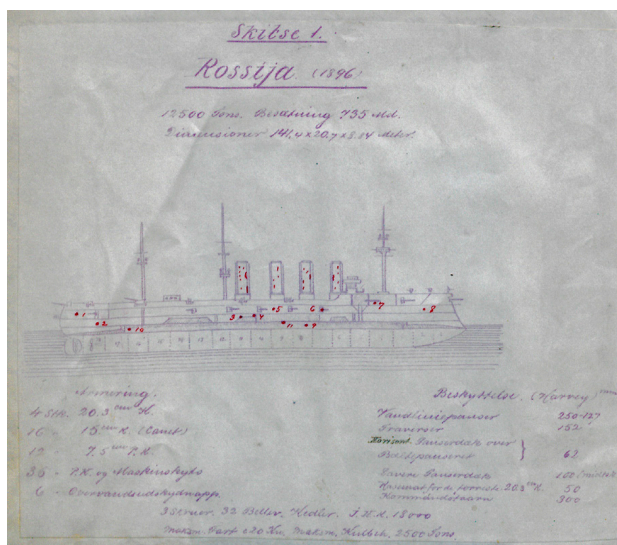 Skitse 1.
Rossija (1896)
12500 Tons. Besætning 735 Md.
Dimensioner 141,4 x 20,7 x 8.54 Meter.
1
2
10
3
4
5
6
11
9
7
8
Armering.
4 Stk. 20.3 cm K.
16 - 15 cm K. (Canet)
12 - 7.5 cm K.
36 - K. og Maskinskyts
6 - Overvandsudskydnapp.
Beskyttelse. (Harvey) mm
Vandliniepanser 250-127
Traverser 152
Horizont. Panserdæk over
Bæltepanseret 62
50
Kommandotaarn 300
3 Skruer. 32 Bellev. Kedler. I.H.K. 18000
Maxim. Fart 20 Kn. Maxim. Kulbeh. 2500 Tons.